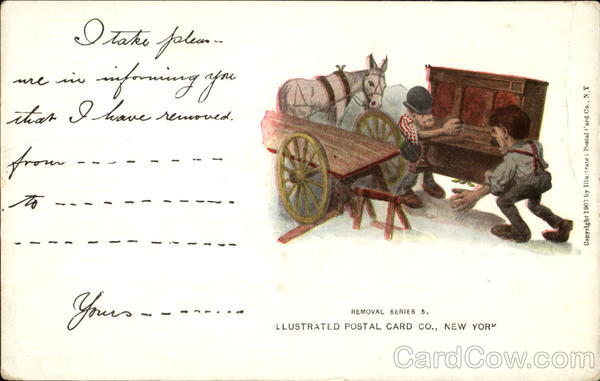 I take pleas-
ure in informing you
that I have removed.
from
to
Yours
REMOVAL SERIES 5.
ILLUSTRATED POSTAL CARD CO., NEW YORK
Copyright 1907 by Illustrated Postal Card Co., N.Y
CardCow.com